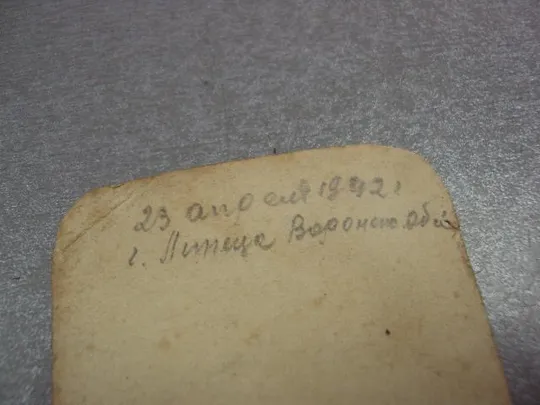 23 апреля 1942 г
г. Липецк Воронеж. обл.